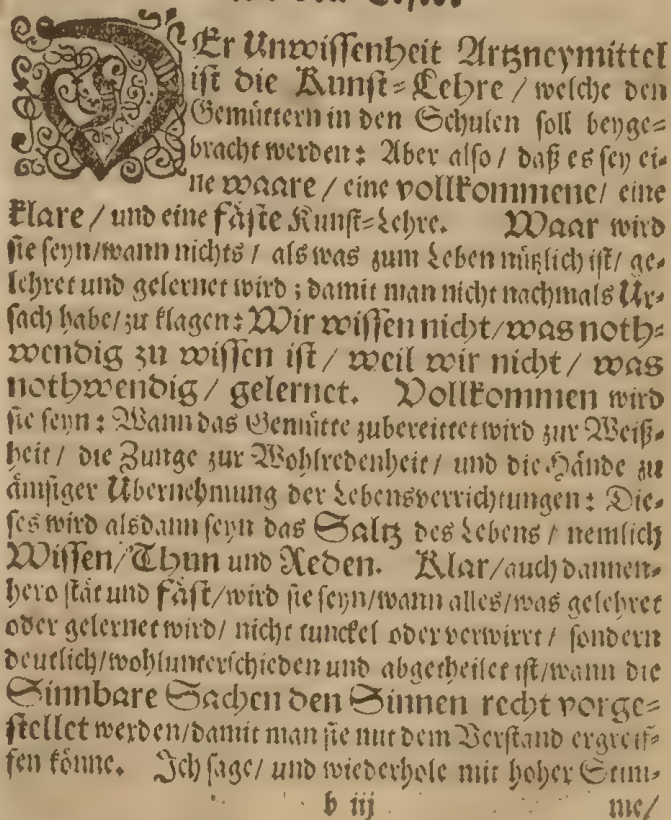 DEr Unwissenheit Artzneymittel
ist die Kunst=Lehre / welche den
Gemüttern in den Schulen soll beyge=
bracht werden: Aber also / daß es sey ei=
ne waare / eine vollkommene / eine
klare / und eine fäste Kunst=Lehre. Waar wird
sie seyn/wann nichts / als was zum Leben nützlich ist / ge=
lehret und gelernet wird; damit man nicht nachmals Ur=
sach habe / zu klagen: Wir wissen nicht / was noth=
wendig zu wissen ist / weil wir nicht / was
nothwendig / gelernet. Vollkommen wird
sie seyn: Wann das Gemütte zubereittet wird zur Weiß=
heit / die Zunge zur Wohlredenheit / und die Hände zu
ämsiger Übernehmung der Lebensverrichtungen: Die=
ses wird alsdann seyn das Saltz des Lebens / nemlich
Wissen/Thun und Reden. Klar/auch dannen=
hero stät und fäst/wird sie seyn/wann alles/was gelehret
oder gelernet wird / nicht tunckel oder verwirrt / sondern
deutlich/wohlunterschieden und abgetheilet ist/wann die
Sinnbare Sachen den Sinnen recht vorge=
stellet werden/damit man sie mit dem Verstand ergreif=
fen könne. Ich sage / und wiederhole mit hoher Stim=
b iij me/